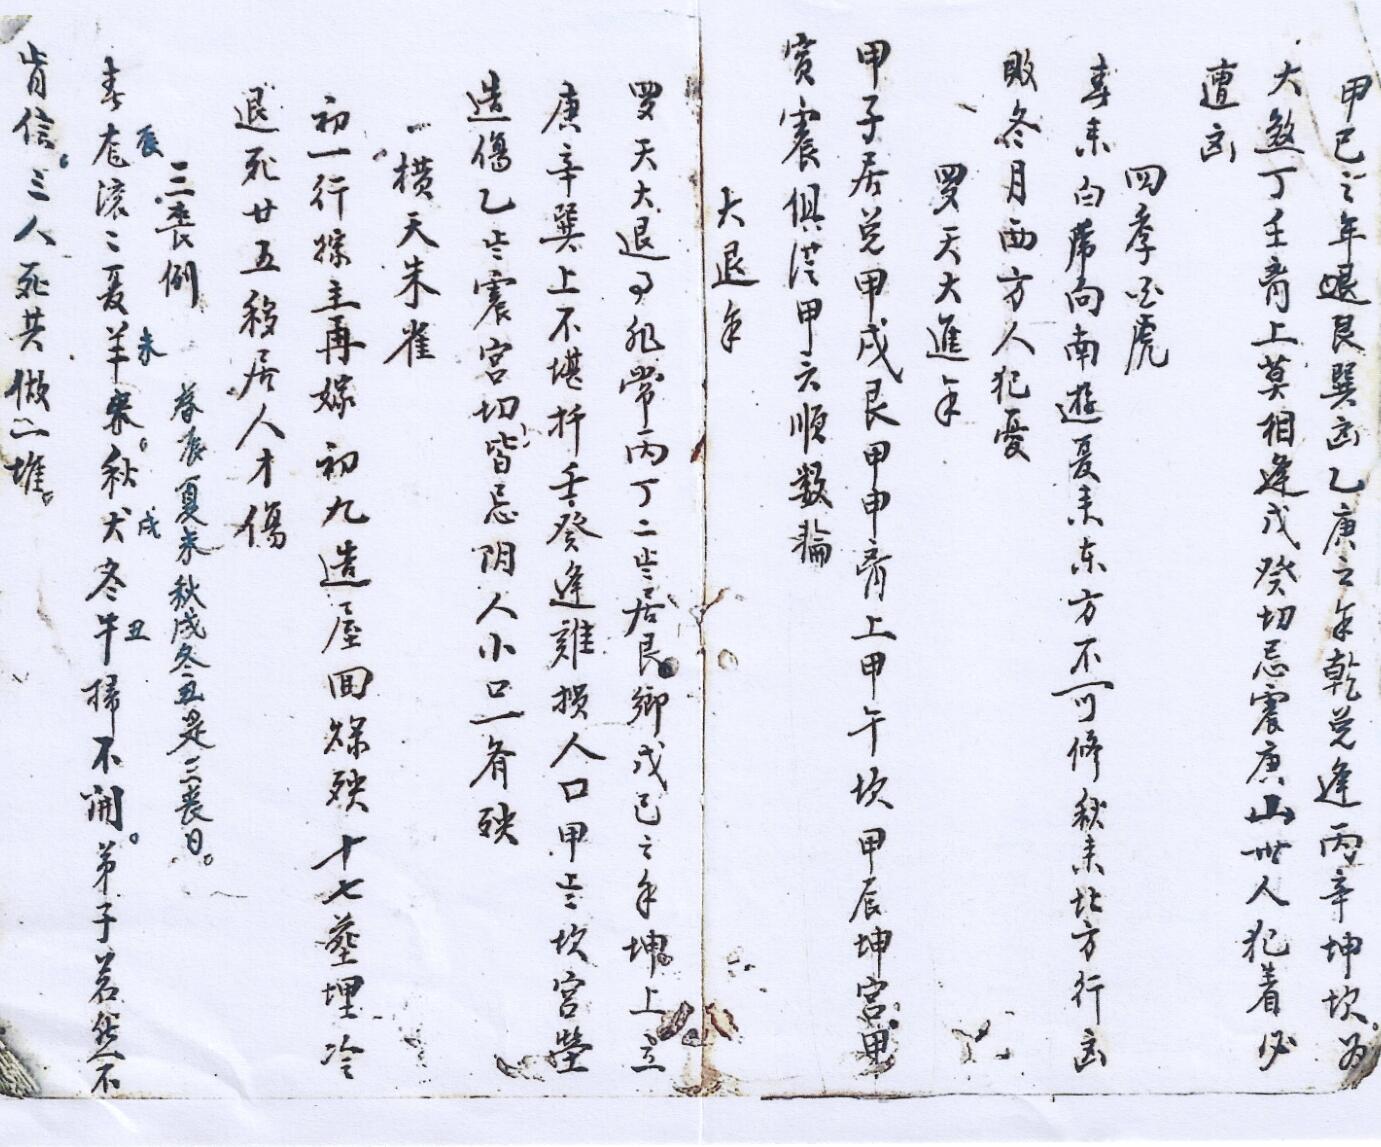 甲己之年退艮巽凶乙庚之年乾兑逢丙辛坤坎为
大煞丁壬脊上莫相逢戊癸切忌震庚山世人犯着必
遭凶
四季白虎
春来白席向南遊夏来东方不可修秋来北方行凶
敗冬月西方人犯憂
罗天大進年
甲子居兑甲戌艮甲申脊上甲午坎甲辰坤宮甲
寅震俱從甲六順数輪
大退年
罗天大退不非常丙丁二步居艮鄉戊己之年坤上立
庚辛巽上不堪扦壬癸逢離损人口甲步坎宮塋
造傷乙步震宮切皆忌阴人小口一齐殃
横天朱雀
初一行嫁主再嫁初九造屋回祿殃十七葬埋冷
退死廿五移居人才傷
三喪例
春辰夏未秋戌冬丑是三喪日。
春龙滚滚夏羊来。秋犬冬牛掃不開。弟子若然不
辰 未 戌 丑
肯信。三人死共做一堆。